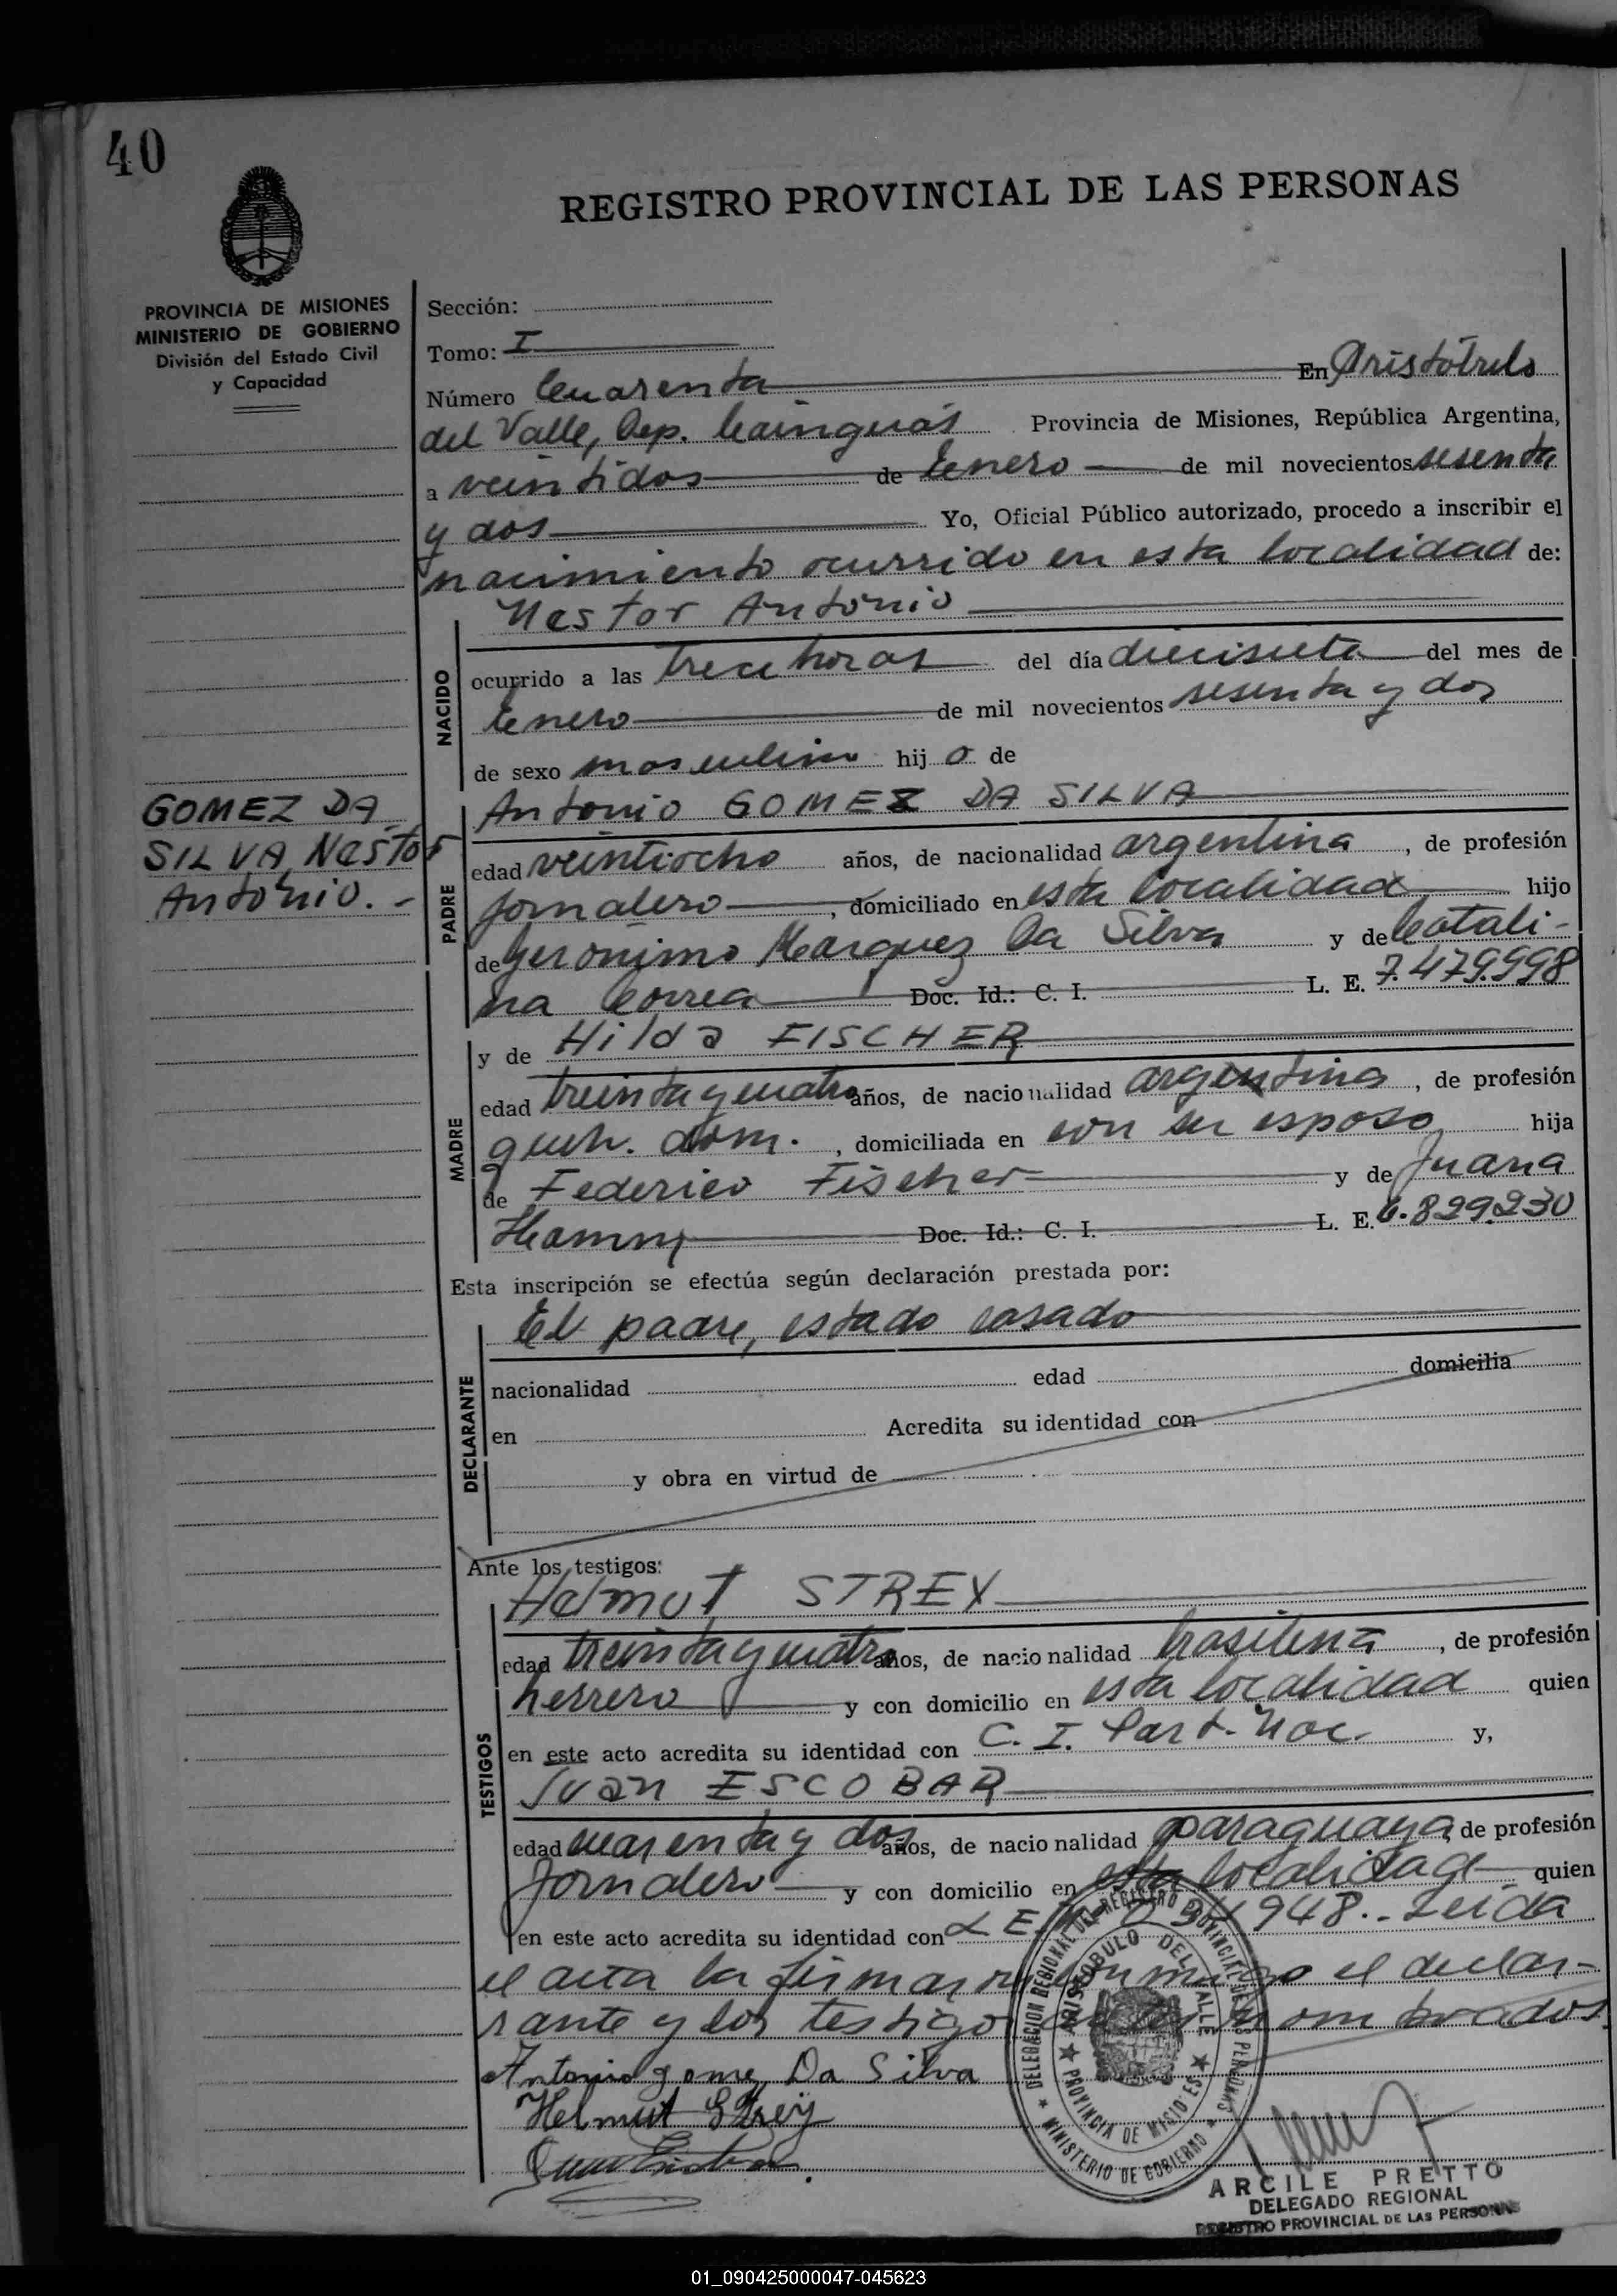 40
REGISTRO PROVINCIAL DE LAS PERSONAS
PROVINCIA DE MISIONES
MINISTERIO DE GOBIERNO
División del Estado Civil
y Capacidad
Sección:
Tomo: I
Número Cuarenta En Aristóbulo
del Valle, Dep. Cainguás Provincia de Misiones, República Argentina,
a veintidos de Enero de mil novecientos sesenta
y dos Yo, Oficial Público autorizado, procedo a inscribir el
nacimiento ocurrido en esta localidad de:
Nestor Antonio
NACIDO
ocurrido a las trece horas del día diecisiete del mes de
Enero de mil novecientos sesenta y dos
de sexo masculino hij o de
GOMEZ DA
SILVA, Nestor
Antonio. -
PADRE
Antonio GOMEZ DA SILVA
edad veintiocho años, de nacionalidad argentina, de profesión
Jornalero, domiciliado en esta localidad hijo
de Geronimo Marquez Da Silva y de Catali-
na Correa Doc. Id.: C. I. L. E. 7.479.998
MADRE
y de Hilda FISCHER
edad treinta y cuatro años, de nacionalidad argentina, de profesión
queh. dom., domiciliada en con su esposo hija
de Federico Fischer y de Juana
Doc. Id.: C. I. L. E. 6.829.230
Esta inscripción se efectúa según declaración prestada por:
DECLARANTE
El padre, estado casado
nacionalidad edad domicilia
en Acredita su identidad con
y obra en virtud de
Ante los testigos:
TESTIGOS
Helmut STREY
edad treinta y cuatro años, de nacionalidad brasilena, de profesión
herrero y con domicilio en esta localidad quien
en este acto acredita su identidad con C. I. Part. Nac. y,
Juan ESCOBAR
edad cuarenta y dos años, de nacionalidad paraguaya, de profesión
Jornalero y con domicilio en esta localidad quien
en este acto acredita su identidad con L E 948.- Leida
el acta la firmaron conmigo el decla-
rante y los testigos nombrados.
Antonio gomez Da Silva
Helmut Strey
DELEGACION REGIONAL DEL REGISTRO PROVINCIAL DE LAS PERSONAS
★ MINISTERIO DE GOBIERNO ★
ARISTOBULO DEL VALLE
★ PROVINCIA DE MISIONES ★
ARCILE PRETTO
DELEGADO REGIONAL
REGISTRO PROVINCIAL DE LAS PERSONAS
01_090425000047-045623